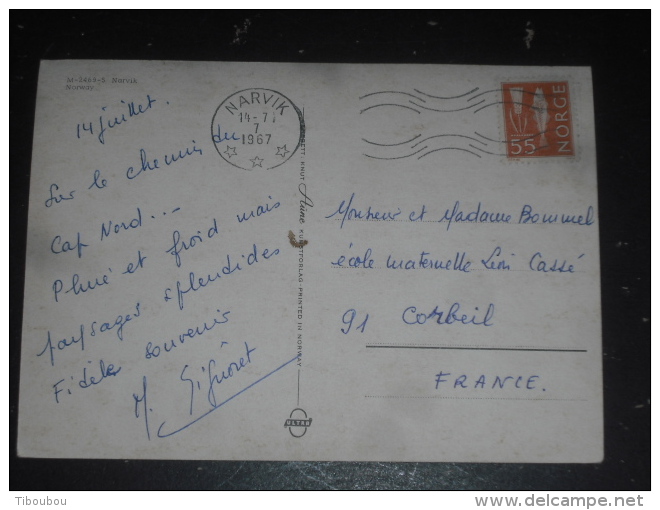 M-2468-5 Narvik
Norway.
14 juillet.
Sur le chemin du
Cap Nord...
Pluie et froid mais
paysages splendides
Fidèle souvenir
M.
NARVIK
14-71
7
1967
NORGE
55
KNUT Aune KUNSTFORLAG PRINTED IN NORWAY
ULTRA
Monsieur et Madame Bommel
école maternelle Léon Cassé
91 Corbeil
FRANCE.
Tiboubou
http://www.delcampe.net